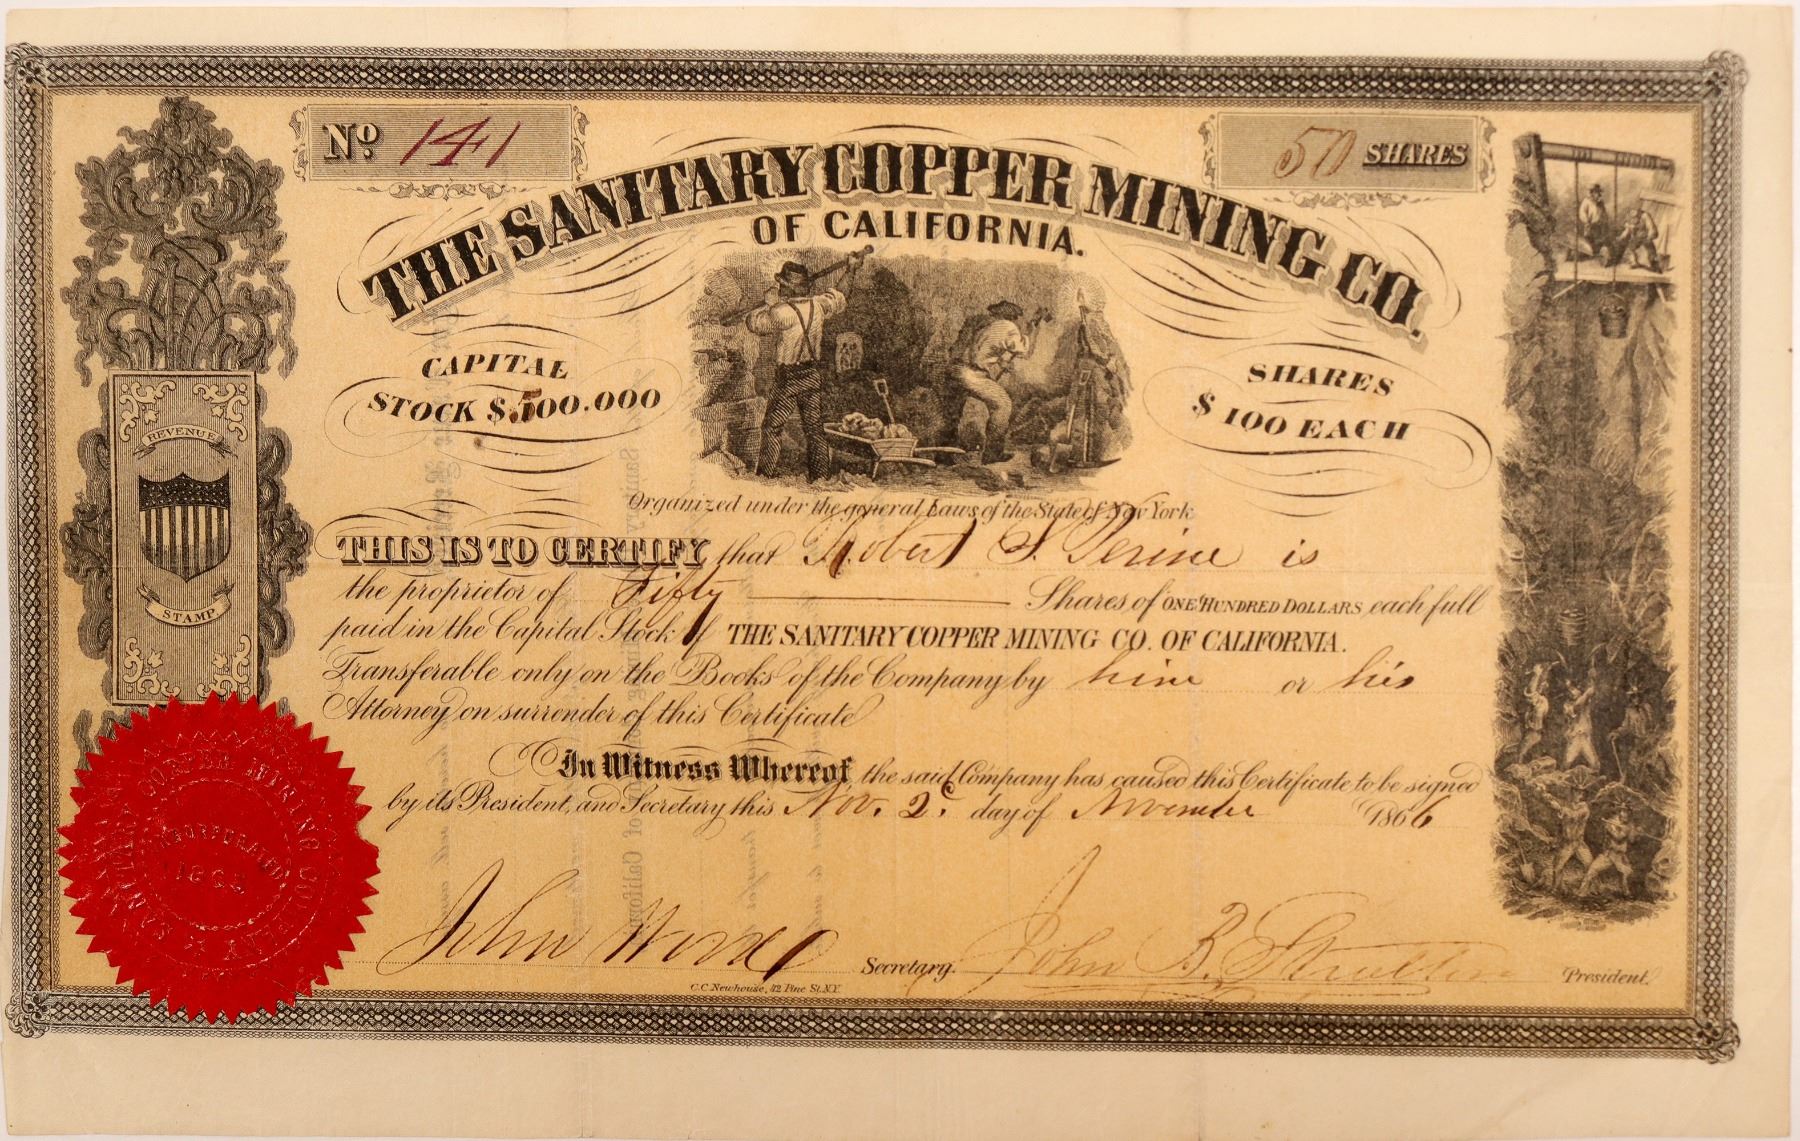 No. 141
50 SHARES
THE SANITARY COPPER MINING CO.
OF CALIFORNIA.
CAPITAL
STOCK $500.000
SHARES
$100 EACH
REVENUE
STAMP
Organized under the general Laws of the State of New York
THIS IS TO CERTIFY that Robert S. Perine is
the proprietor of Fifty Shares of ONE HUNDRED DOLLARS each full
paid in the Capital Stock of THE SANITARY COPPER MINING CO. OF CALIFORNIA.
Transferable only on the Books of the Company by him or his
Attorney on surrender of this Certificate
In Witness Whereof, the said Company has caused this Certificate to be signed
by its President, and Secretary this Nov. 2d day of November 1866
SANITARY COPPER MINING COMPANY
INCORPORATED
John Secretary.
John B. President.
C.C. Newhouse, 42 Pine St. N.Y.